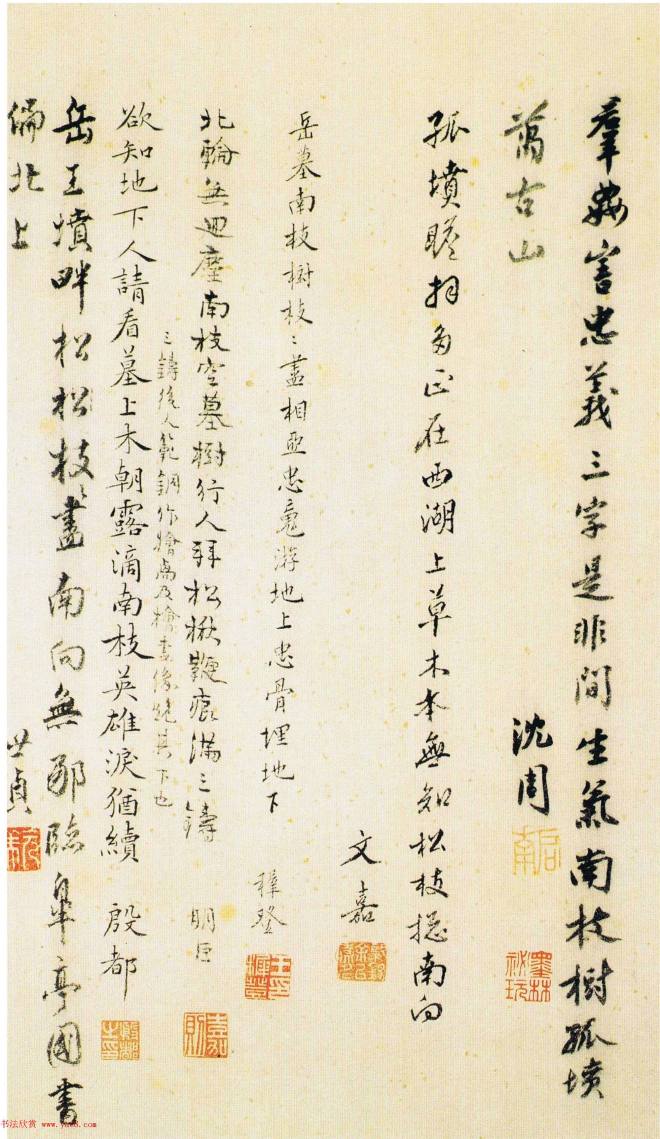 羣奸害忠義三字是非間生氣南枝樹孤墳
萬古山
沈周
孤墳瞻拜多正在西湖上草木本無知松枝摠南向
文嘉
岳墓南枝樹枝〻盡相亞忠魂游地上忠骨埋地下
穉登
北輪無迴塵南枝空墓樹行人拜松楸鞭痕滿三鑄
三鑄後人範銅作檜卨及檜妻像跪其下也
明臣
欲知地下人請看墓上木朝露滴南枝英雄淚猶續
殷都
岳王墳畔松松枝〻盡南向無那臨皐亭國書
偏北上
世貞
墨林
祕玩
书法欣赏 www.yac8.com